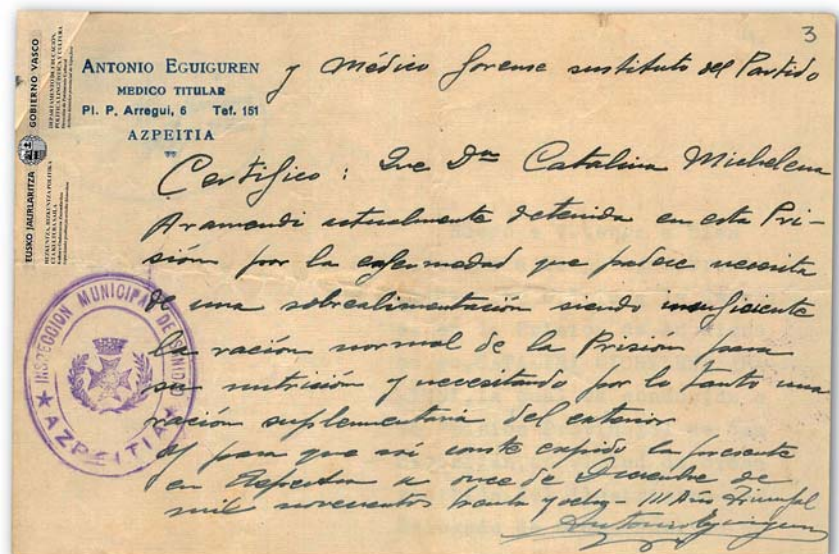 3
ANTONIO EGUIGUREN
MEDICO TITULAR
Pl. P. Arregui, 6 Tef. 151
AZPEITIA
y Médico forense sustituto del Partido
Certifico: Que Dña Catalina Michelena
Aramendi actualmente detenida en esta Pri-
sión por la enfermedad que padece necesita
de una sobrealimentación siendo insuficiente
la ración normal de la Prisión para
su nutrición y necesitando por lo tanto una
ración suplementaria del exterior
Y para que así conste expido la presente
en Azpeitia a once de Diciembre de
mil novecientos treinta y ocho - III Año Triunfal
Antonio Eguiguren
INSPECCION MUNICIPAL DE SANIDAD
AZPEITIA
EUSKO JAURLARITZA
GOBIERNO VASCO